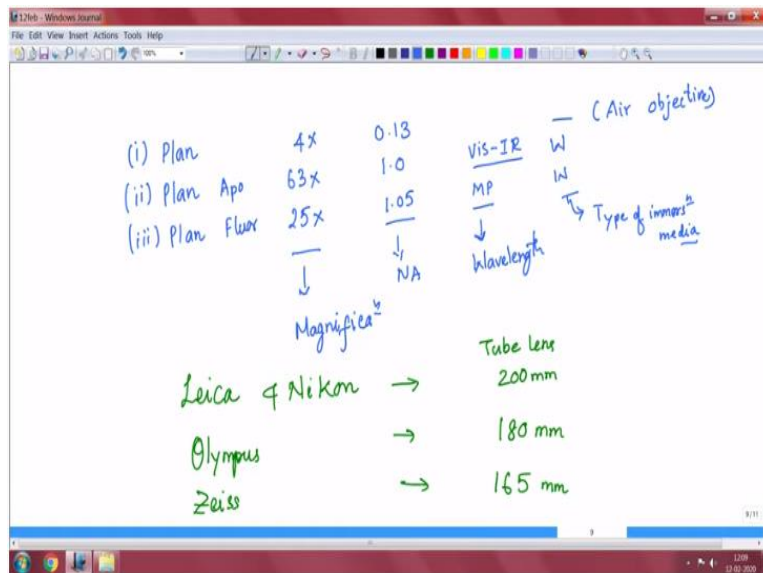 12feb - Windows Journal
File Edit View Insert Actions Tools Help
100%
(i) Plan 4x 0.13 — (Air objective)
(ii) Plan Apo 63x 1.0 Vis-IR W
(iii) Plan Fluor 25x 1.05 MP W
Magnificaⁿ NA Wavelength Type of immersⁿ media
Tube lens
Leica & Nikon → 200 mm
Olympus → 180 mm
Zeiss → 165 mm
9/11
9
12:09
12-02-2020